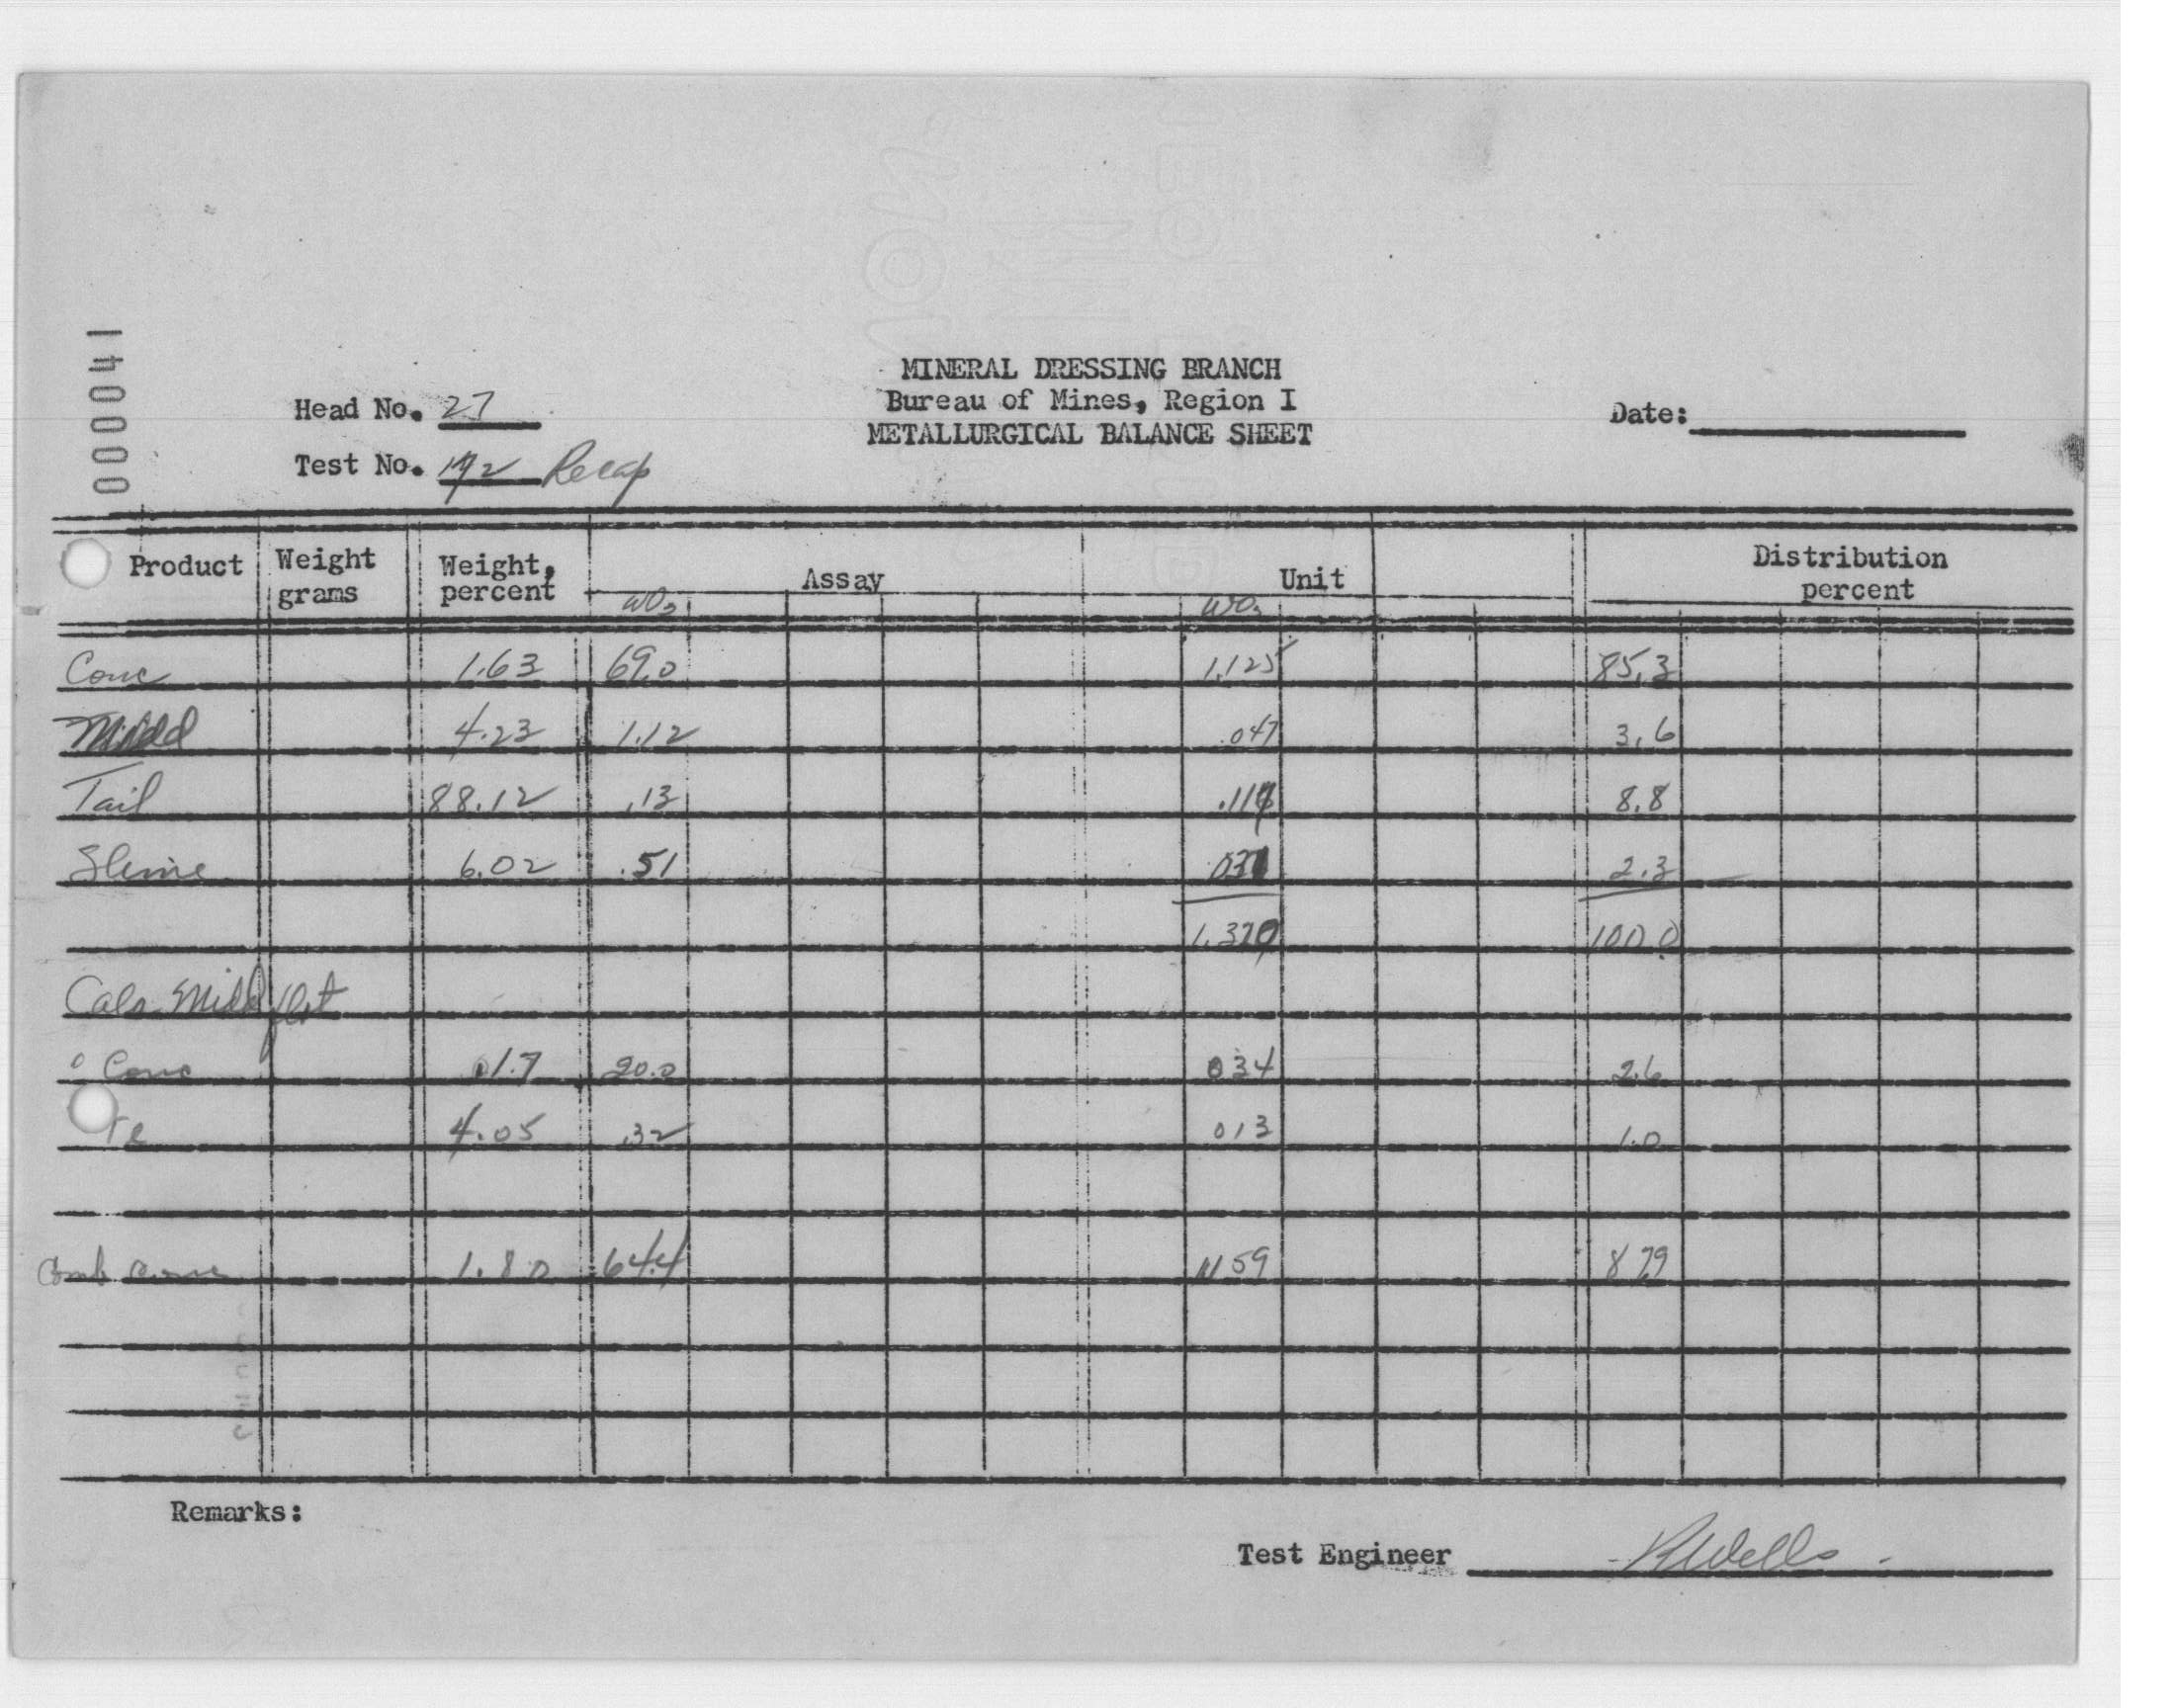 140000
MINERAL DRESSING BRANCH
Head No. 27 Bureau of Mines, Region I Date:
METALLURGICAL BALANCE SHEET
Test No. Recap
Product Weight grams Weight, percent Assay Unit Distribution percent
WO3 WO3
Conc 1.63 69.0 1.125 85.3
Midd 4.23 1.12 .047 3.6
Tail 88.12 .13 8.8
Slime 6.02 .51 2.3
100.0
Calc Midd flot
Conc 20.0 034 2.6
4.05 .32 013 1.0
Comb Conc 1.80 64.4 1159 87.9
Remarks:
Test Engineer RWells